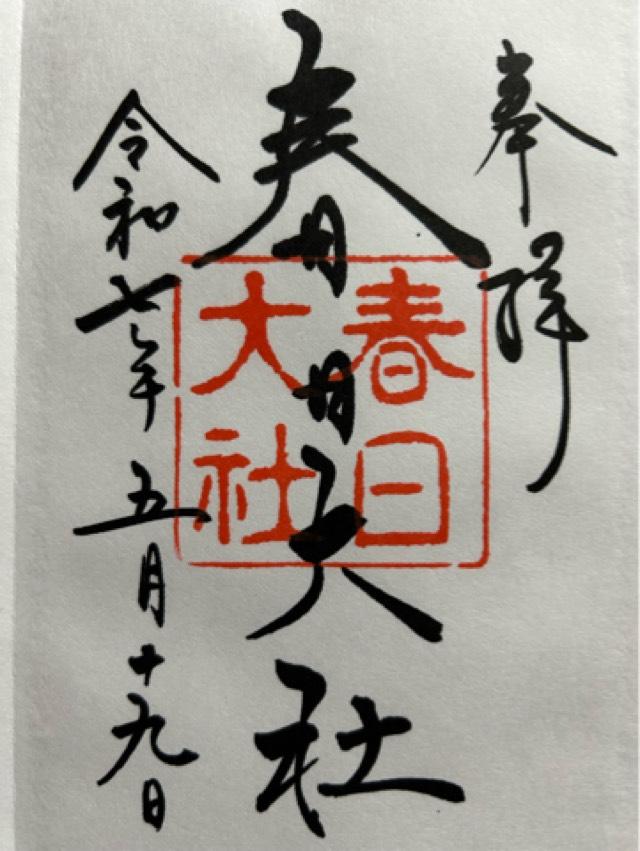 奉拝
春日大社
春日
大社
令和七年五月十九日